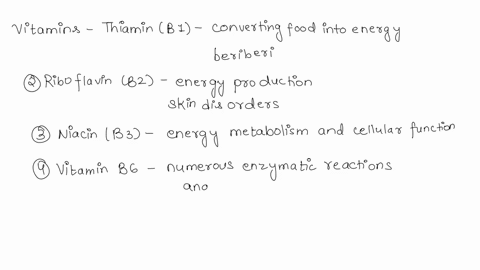 Vitamins - Thiamin (B1) - converting food into energy
beriberi
② Riboflavin (B2) - energy production
skin disorders
③ Niacin (B3) - energy metabolism and cellular function
④ Vitamin B6 - numerous enzymatic reactions
ano